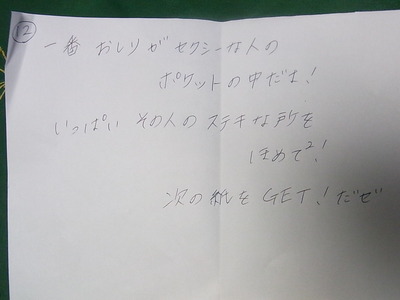 ⑫
一番 おしりがセクシーな人の
ポケットの中だよ!
いっぱい その人のステキな所を
ほめて²!
次の紙をGET!だぜ